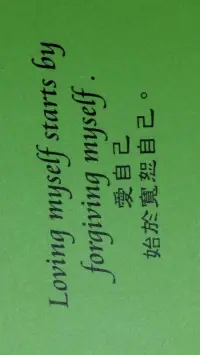 Loving myself starts by
forgiving myself .
愛自己
始於寬恕自己。